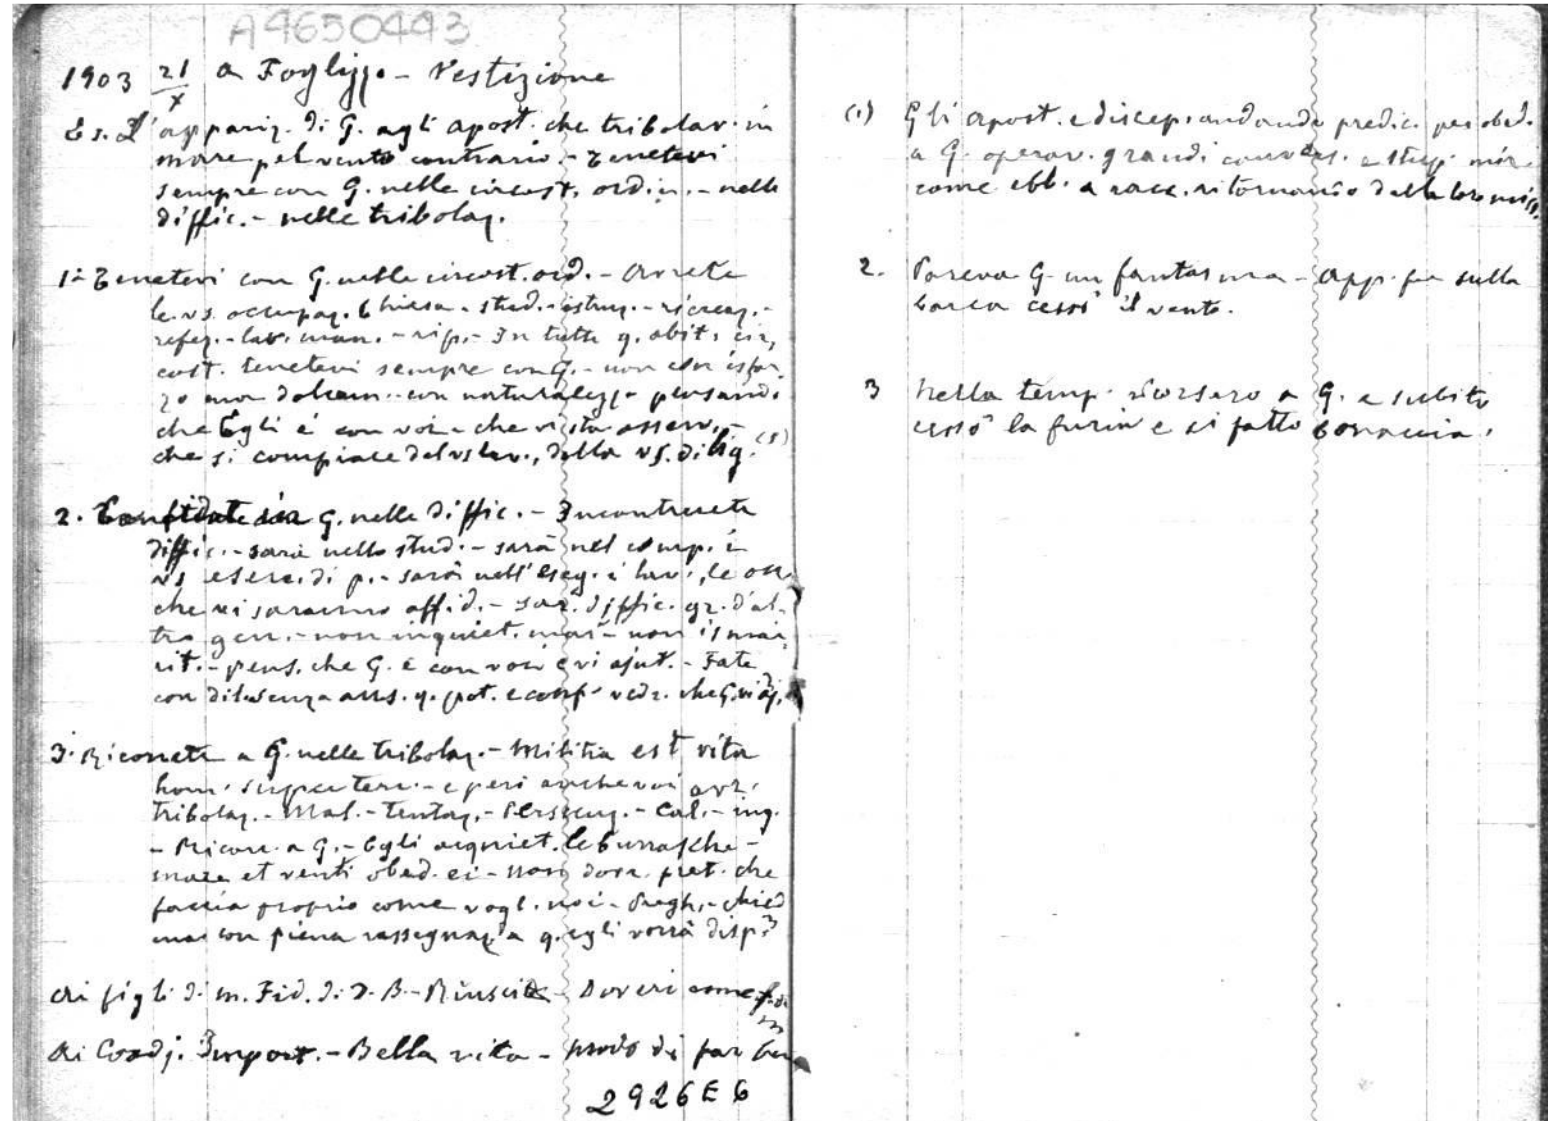 A4650443
1903 21/X a Foglizzo - Vestizione
Es. L'appariz. di G. agli apost. che tribolav. in
mare pel vento contrario. - Tenetevi
sempre con G. nelle circost. ordin. - nelle
diffic. - nelle tribolaz.
1º Tenetevi con G. nelle circost. ord. - Avrete
le vs. occupaz. Chiesa - stud. - istruz. - ricreaz. -
refez. - lav. man. - rip. - In tutte q. abit. cir
cost. tenetevi sempre con G. - non con isfor
zo ma dolcem. con naturalezza pensando
che Egli è con voi - che vi sta osserv. -
che si compiace del vs lav., della vs. dilig. (1)
2. Confidate in G. nelle diffic. - Incontrerete
diffic. - sarà nello stud. - sarà nel comp. i
vs eserc. di p. - sarà nell'eseg. i lav., le occ.
che vi saranno affid. - sar. diffic. gr. d'al-
tro gen. - non inquiet. mai - non ismar
rit. - pens. che G. è con voi e vi ajut. - Fate
con diligenza q. pot. e conf. vedr. che G. vi aj.
3. Ricorrete a G. nelle tribolaz. - Militia est vita
hom. super terr. - e però anche voi avr.
tribolaz. - Mal. - tentaz. - Persecuz. - Cal. - ing.
- Ricorr. a G. - Egli acquiet. le burrasche -
mare et venti obed. ei - Non dovr. pret. che
faccia proprio come vogl. noi - Pregh. - chied
ma con piena rassegnaz. a q. egli vorrà disp.
Ai figli di M. Fid. di D. B. - Riuscita - Doveri come
Ai Coadj. Import. - Bella vita - modo di far ben
2926E6
(1) Gli apost. e discep. andando predic. per obed.
a G. operav. grandi convers. e stup. mir.
come ebb. a racc. ritornando dalla loro miss.
2. Pareva G. un fantasma - App. fu sulla
barca cessò il vento.
3 Nella temp. ricorsero a G. e subito
cessò la furia e si fatto bonaccia.